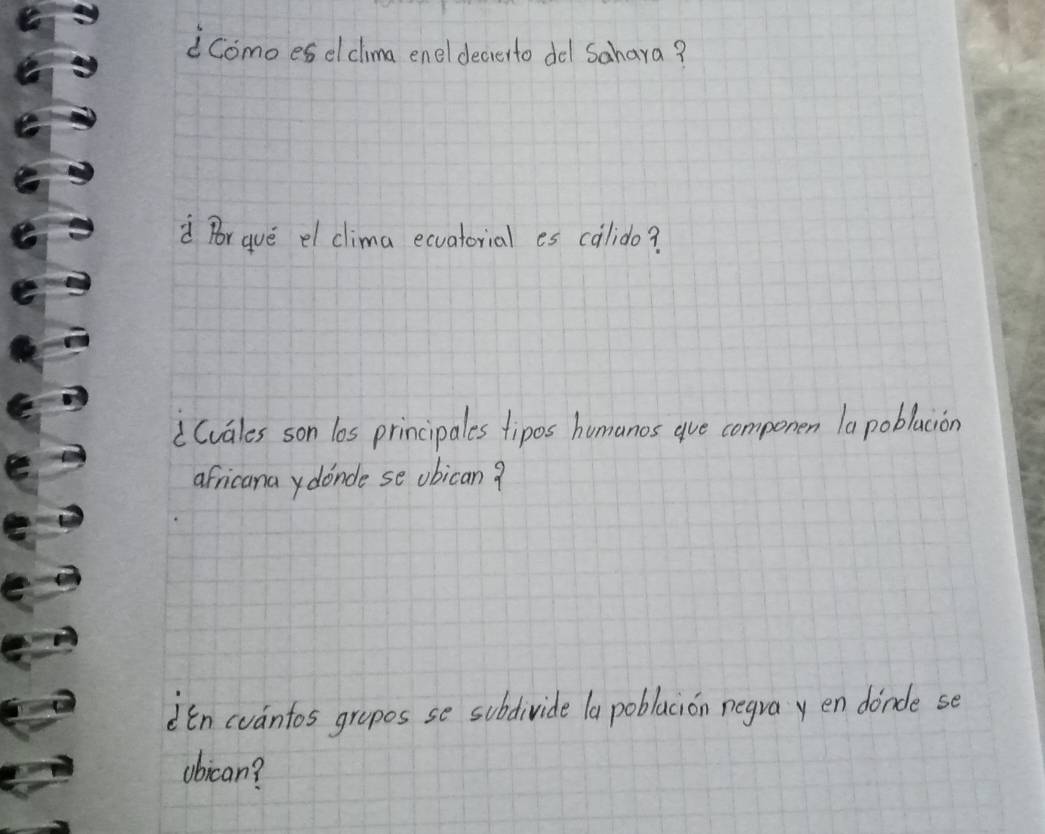 ¿Cómo es el clima en el decierto del Sahara?
¿Por qué el clima ecuatorial es cálido?
¿Cuáles son los principales tipos humanos que componen la población
africana y dónde se ubican?
¿En cuántos grupos se subdivide la población negra y en dónde se
ubican?